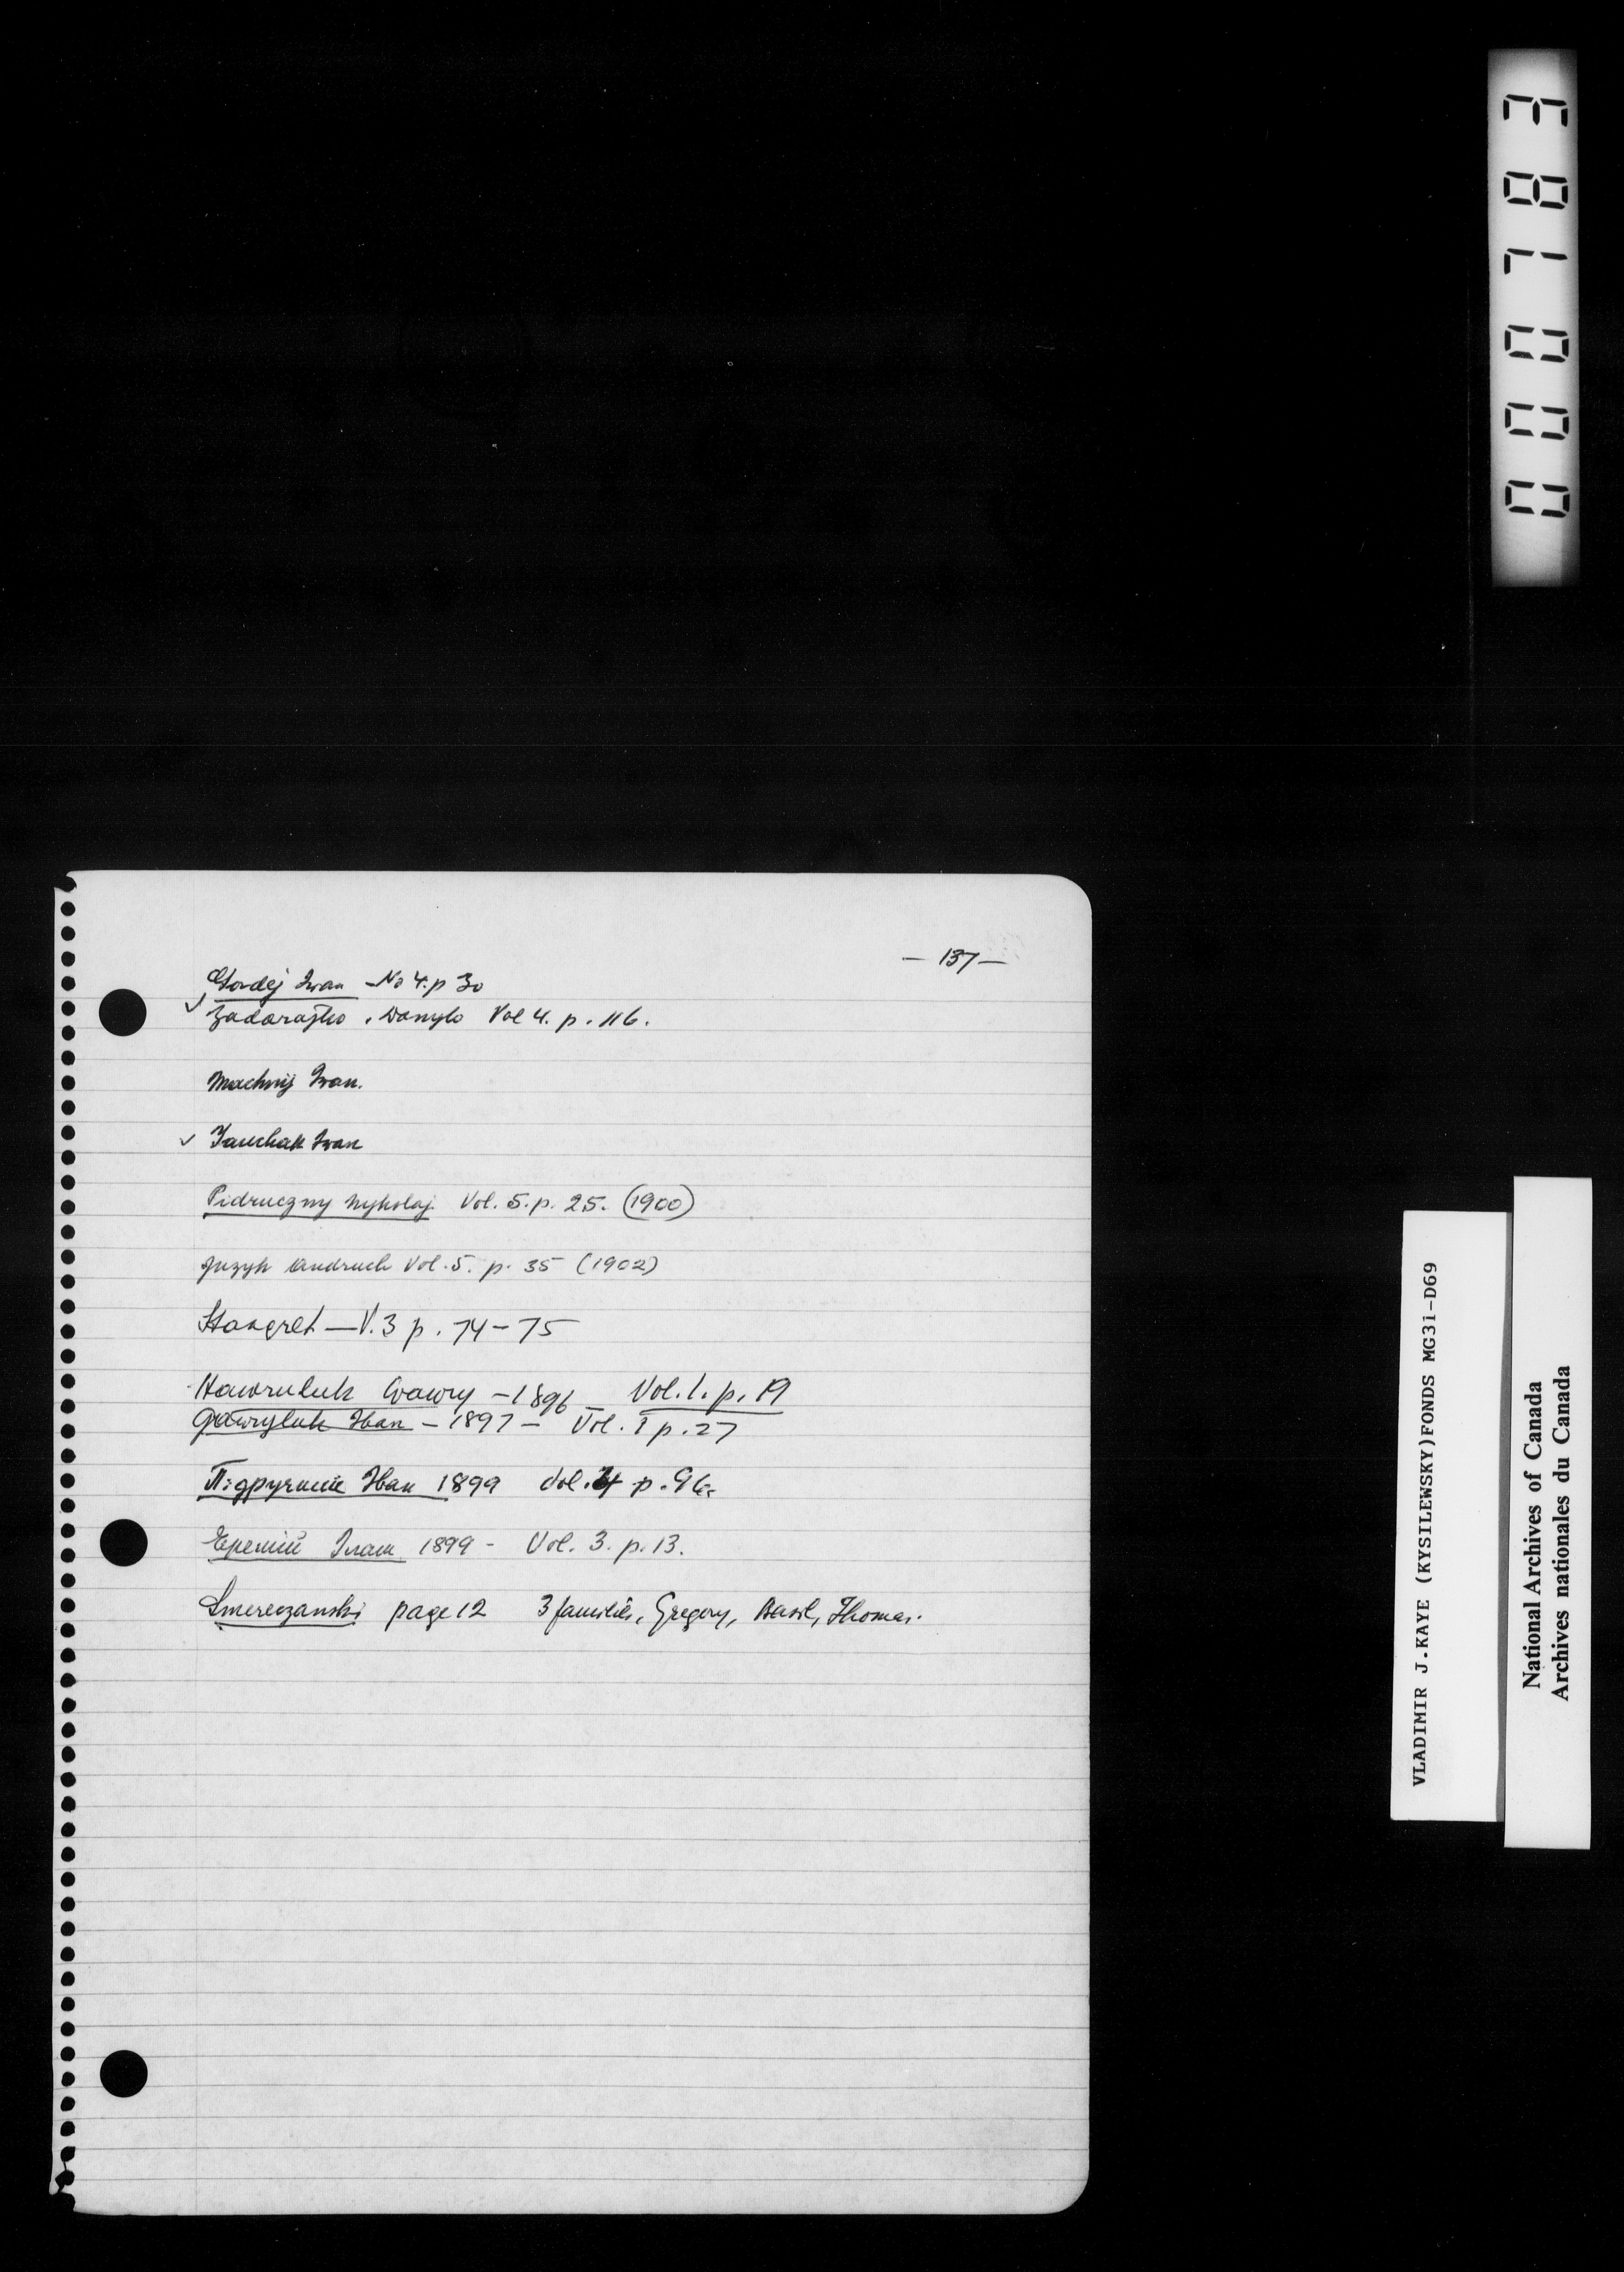 — 137 —
Gordej Iwan – No 4. p 30
✓ Zadorajko, Danylo Vol 4. p. 116.
Machnij Iwan.
✓ Iwan
Pidruczny Mykolaj. Vol. 5. p. 25. (1900)
Andruch Vol. 5. p. 35 (1902)
Hangret — V. 3 p. 74–75
Hawruluk Wawry – 1896 – Vol. 1. p. 19
Gawryluk Іван – 1897 – Vol. 1 p. 27
Підручний Іван 1899 Vol. 4 p. 96.
Еремій 1899 – Vol. 3. p. 13.
Smereczanski page 12 3 families, Gregory, Basil, Thomas.
000783
VLADIMIR J.KAYE (KYSILEWSKY)FONDS MG31-D69
National Archives of Canada
Archives nationales du Canada